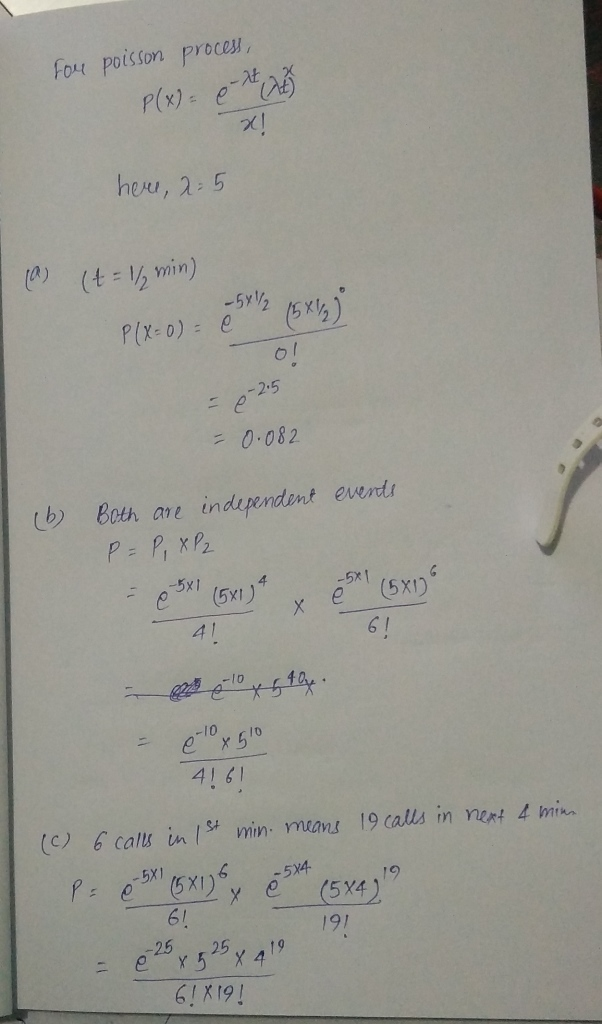 For poisson process,
P(x) = e^-λt (λt)^x / x!
here, λ = 5
(a) (t = 1/2 min)
P(X=0) = e^-5×1/2 (5×1/2)^0 / 0!
= e^-2.5
= 0.082
(b) Both are independent events
P = P1 × P2
= e^-5×1 (5×1)^4 / 4! × e^-5×1 (5×1)^6 / 6!
= e^-10 × 5^10 / 4! 6!
(c) 6 calls in 1st min. means 19 calls in next 4 min
P = e^-5×1 (5×1)^6 / 6! × e^-5×4 (5×4)^19 / 19!
= e^-25 × 5^25 × 4^19 / 6! × 19!